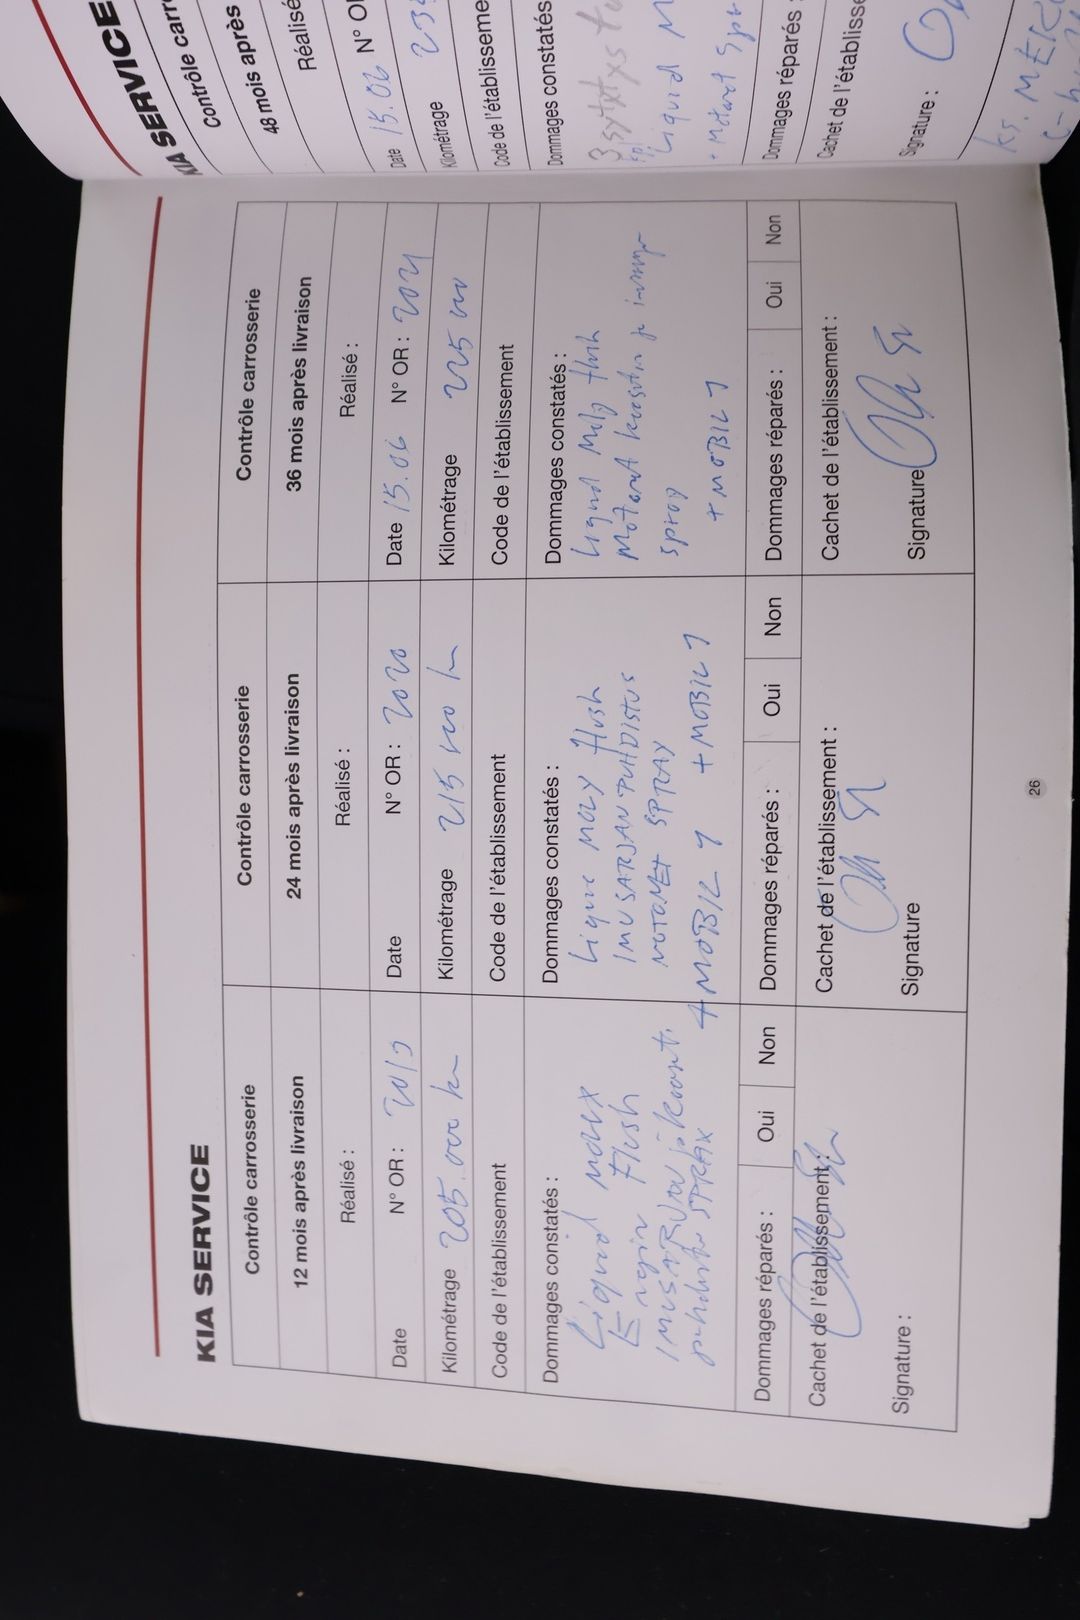 KIA SERVICE
Contrôle carrosserie
12 mois après livraison
Réalisé :
Date N° OR : 2019
Kilométrage 205.000 km
Code de l'établissement
Dommages constatés :
Liquid Moly
Engin Flush
SPRAY
Dommages réparés : Oui Non
Cachet de l'établissement :
Signature :
Contrôle carrosserie
24 mois après livraison
Réalisé :
Date N° OR : 2020
Kilométrage 215 000 km
Code de l'établissement
Dommages constatés :
Lique MOLY flush
IMUSARJAN PUHDISTUS
MOTONET SPRAY
+ MOBIL 1 + MOBIL 1
Dommages réparés : Oui Non
Cachet de l'établissement :
Signature
Contrôle carrosserie
36 mois après livraison
Réalisé :
Date 15.06 N° OR : 2021
Kilométrage 225 000
Code de l'établissement
Dommages constatés :
Liquid Moly flush
Motonet
spray
+ MOBIL 1
Dommages réparés : Oui Non
Cachet de l'établissement :
Signature
26
KIA SERVICE
Contrôle carr
48 mois après
Réalisé
Date 15.06 N° O
Kilométrage 235
Code de l'établisseme
Dommages constatés
Liquid M
• Motonet Spr
Dommages réparés :
Cachet de l'établisse
Signature :